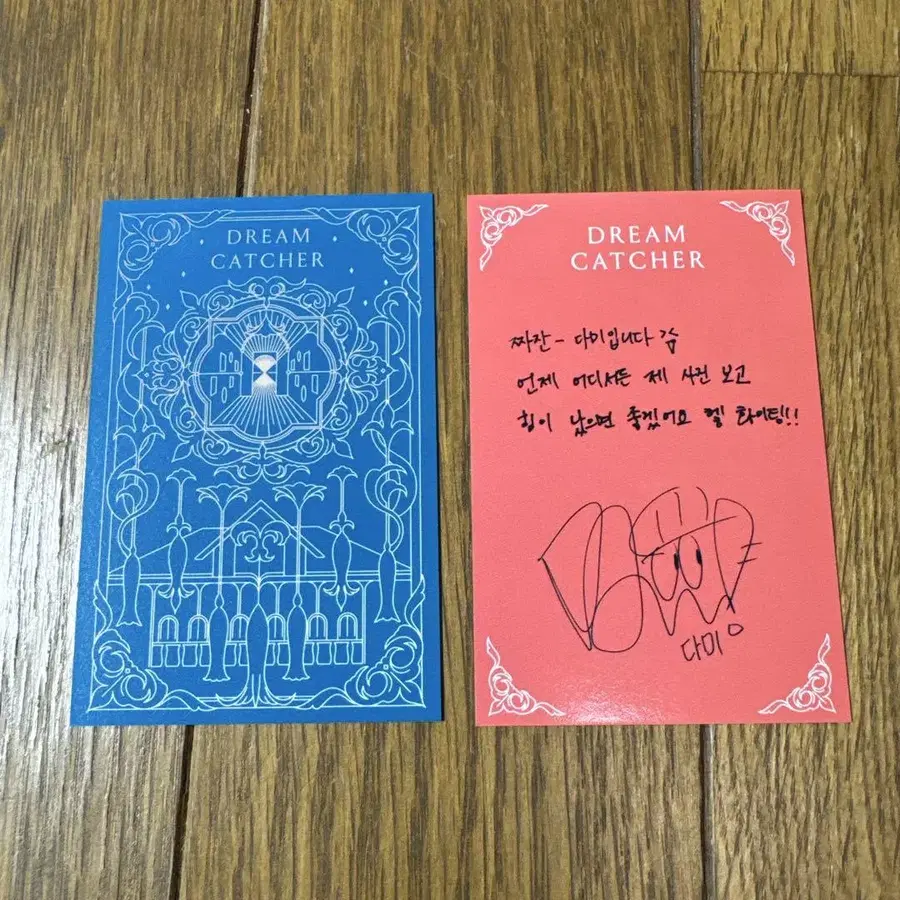 DREAM
CATCHER
DREAM
CATCHER
짜잔 - 다미입니다
언제 어디서든 제 사진 보고
힘이 났으면 좋겠어요 헬 화이팅!!
다미